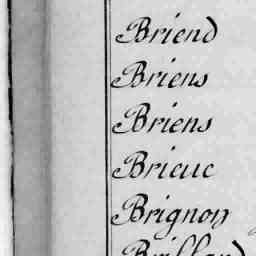 Briend
Briens
Briens
Brieuc
Brignon
Brilland